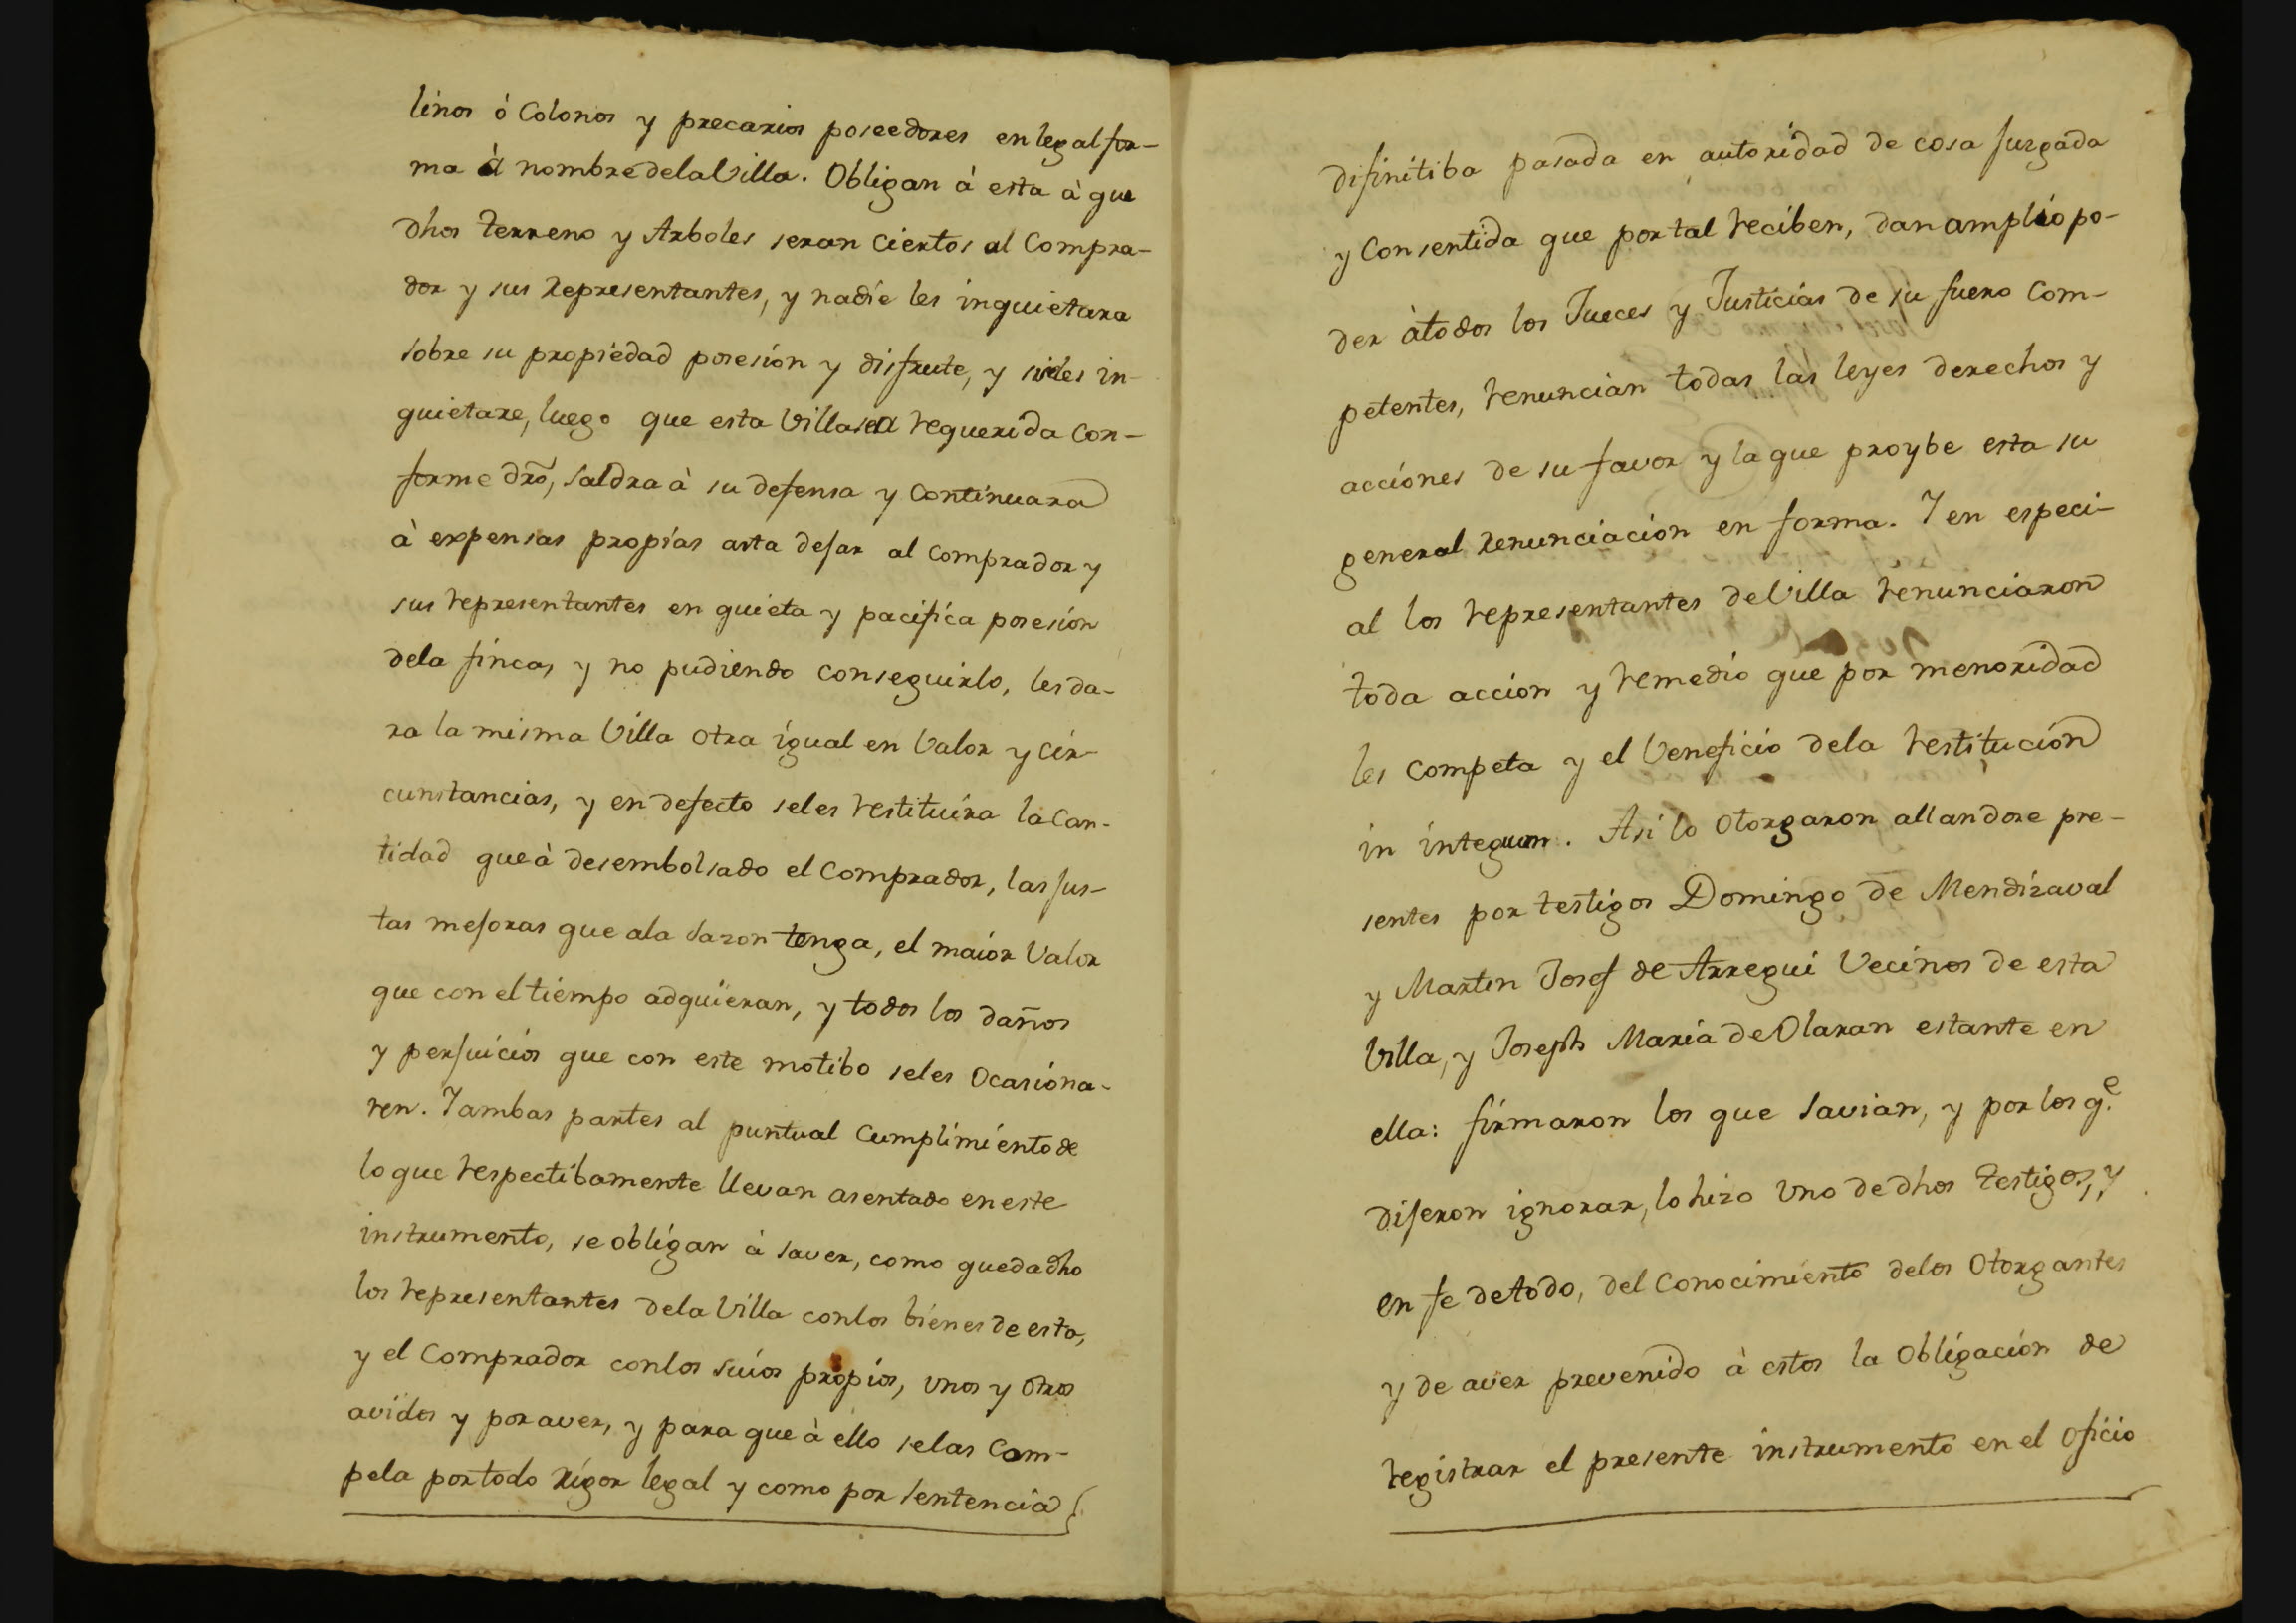 linos ò Colonos y precarios poseedores en legal for-
ma à nombre dela Villa. Obligan à esta à que
dhos terreno y Arboles seran Ciertos al Compra-
dor y sus Representantes, y nadie les inquietara
sobre su propiedad posesión y disfrute, y si les in-
quietare, luego que esta Villa sea requerida con-
forme dro, saldra à su defensa y continuara
à expensas propias asta dejar al comprador y
sus representantes en quieta y pacifica posesión
dela finca, y no pudiendo conseguirlo, les da-
ra la misma Villa otra igual en Valor y cir-
cunstancias, y en defecto seles restituira la Can-
tidad que à desembolsado el Comprador, las jus-
tas mejoras que ala sazon tenga, el maior Valor
que con el tiempo adquieran, y todos los daños
y perjuicios que con este motibo seles Ocasiona-
ren. Y ambas partes al puntual Cumplimiento de
lo que respectibamente llevan asentado en este
instrumento, se obligan à saver, como queda dho
los representantes dela Villa con los bienes de esta,
y el Comprador con los suios propios, unos y otros
avidos y por aver, y para que à ello selas Com-
pela por todo Rigor legal y como por Sentencia
difinitiba pasada en autoridad de cosa Juzgada
y Consentida que por tal reciben, dan amplio po-
der à todos los Jueces y Justicias de su fuero Com-
petentes, renuncian todas las leyes derechos y
acciones de su favor y la que proybe esta su
general Renunciación en forma. Y en especi-
al los representantes de Villa renunciaron
toda accion y remedio que por menoridad
les competa y el Veneficio dela restitución
in integrum. Asi lo Otorgaron allandose pre-
sentes por testigos Domingo de Mendizaval
y Martin Josef de Arregui Vecinos de esta
Villa, y Joseph Maria de Olaran estante en
ella: firmaron los que Savian, y por los q.e
dijeron ignorar, lo hizo uno de dhos testigos, y
en fe de todo, del Conocimiento delos Otorgantes
y de aver prevenido à estos la Obligación de
registrar el presente instrumento en el oficio